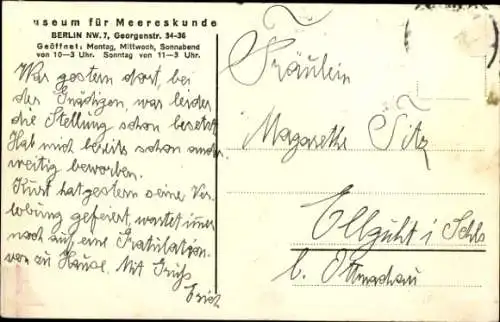 useum für Meereskunde
BERLIN NW. 7, Georgenstr. 34-36
Geöffnet: Montag, Mittwoch, Sonnabend
von 10—3 Uhr. Sonntag von 11—3 Uhr.
War gestern dort, bei
der Gnädigen, war leider
die Stellung schon besetzt
Hab mich bereits schon ander
weitig beworben.
Kurt hat gestern seine Ver
lobung gefeiert, wartet immer
noch auf eine Gratulation
von zu Hause. Mit Gruß
Erich
Fräulein
Magarethe Titz
Ellguht i Schls
b. Ottmachau